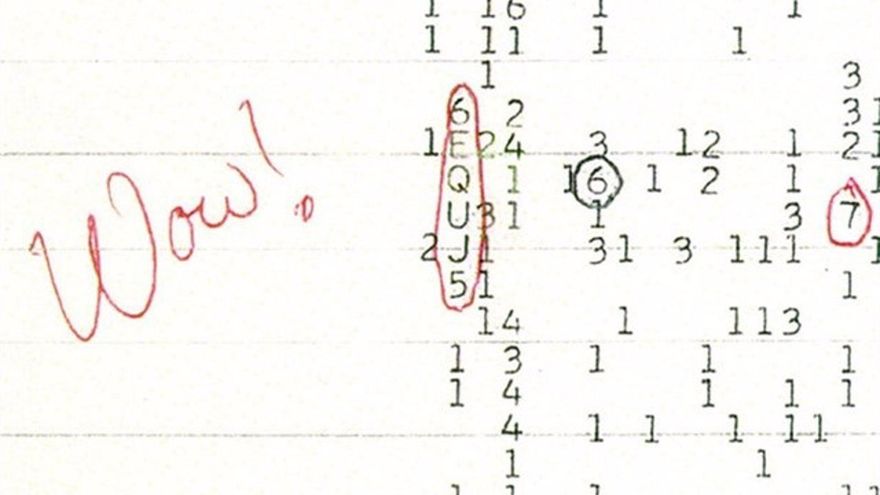 1 16 1 1
1 11 1 1
1 3
6 2 31
1 E 24 3 12 1 21
Q 1 16 1 2 1 1
U 31 1 3 7
2 J 1 31 3 111 1
51 1
14 1 113
1 3 1 1 1
1 4 1 1 1
4 1 1 1 11
1 1
1 1 1 11
Wow!